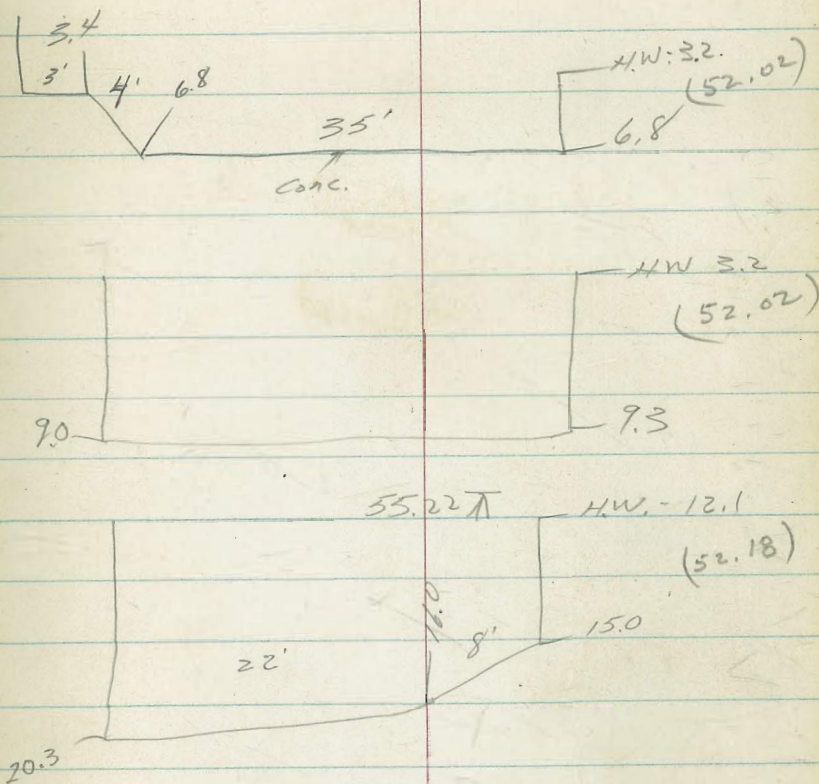 3.4
3' 4' 6.8 35' H.W: 3.2. (52.02)
6.8
conc.
H.W 3.2
(52.02)
9.0 9.3
55.22 H.W. - 12.1
(52.18)
16.0 8' 15.0
22'
20.3